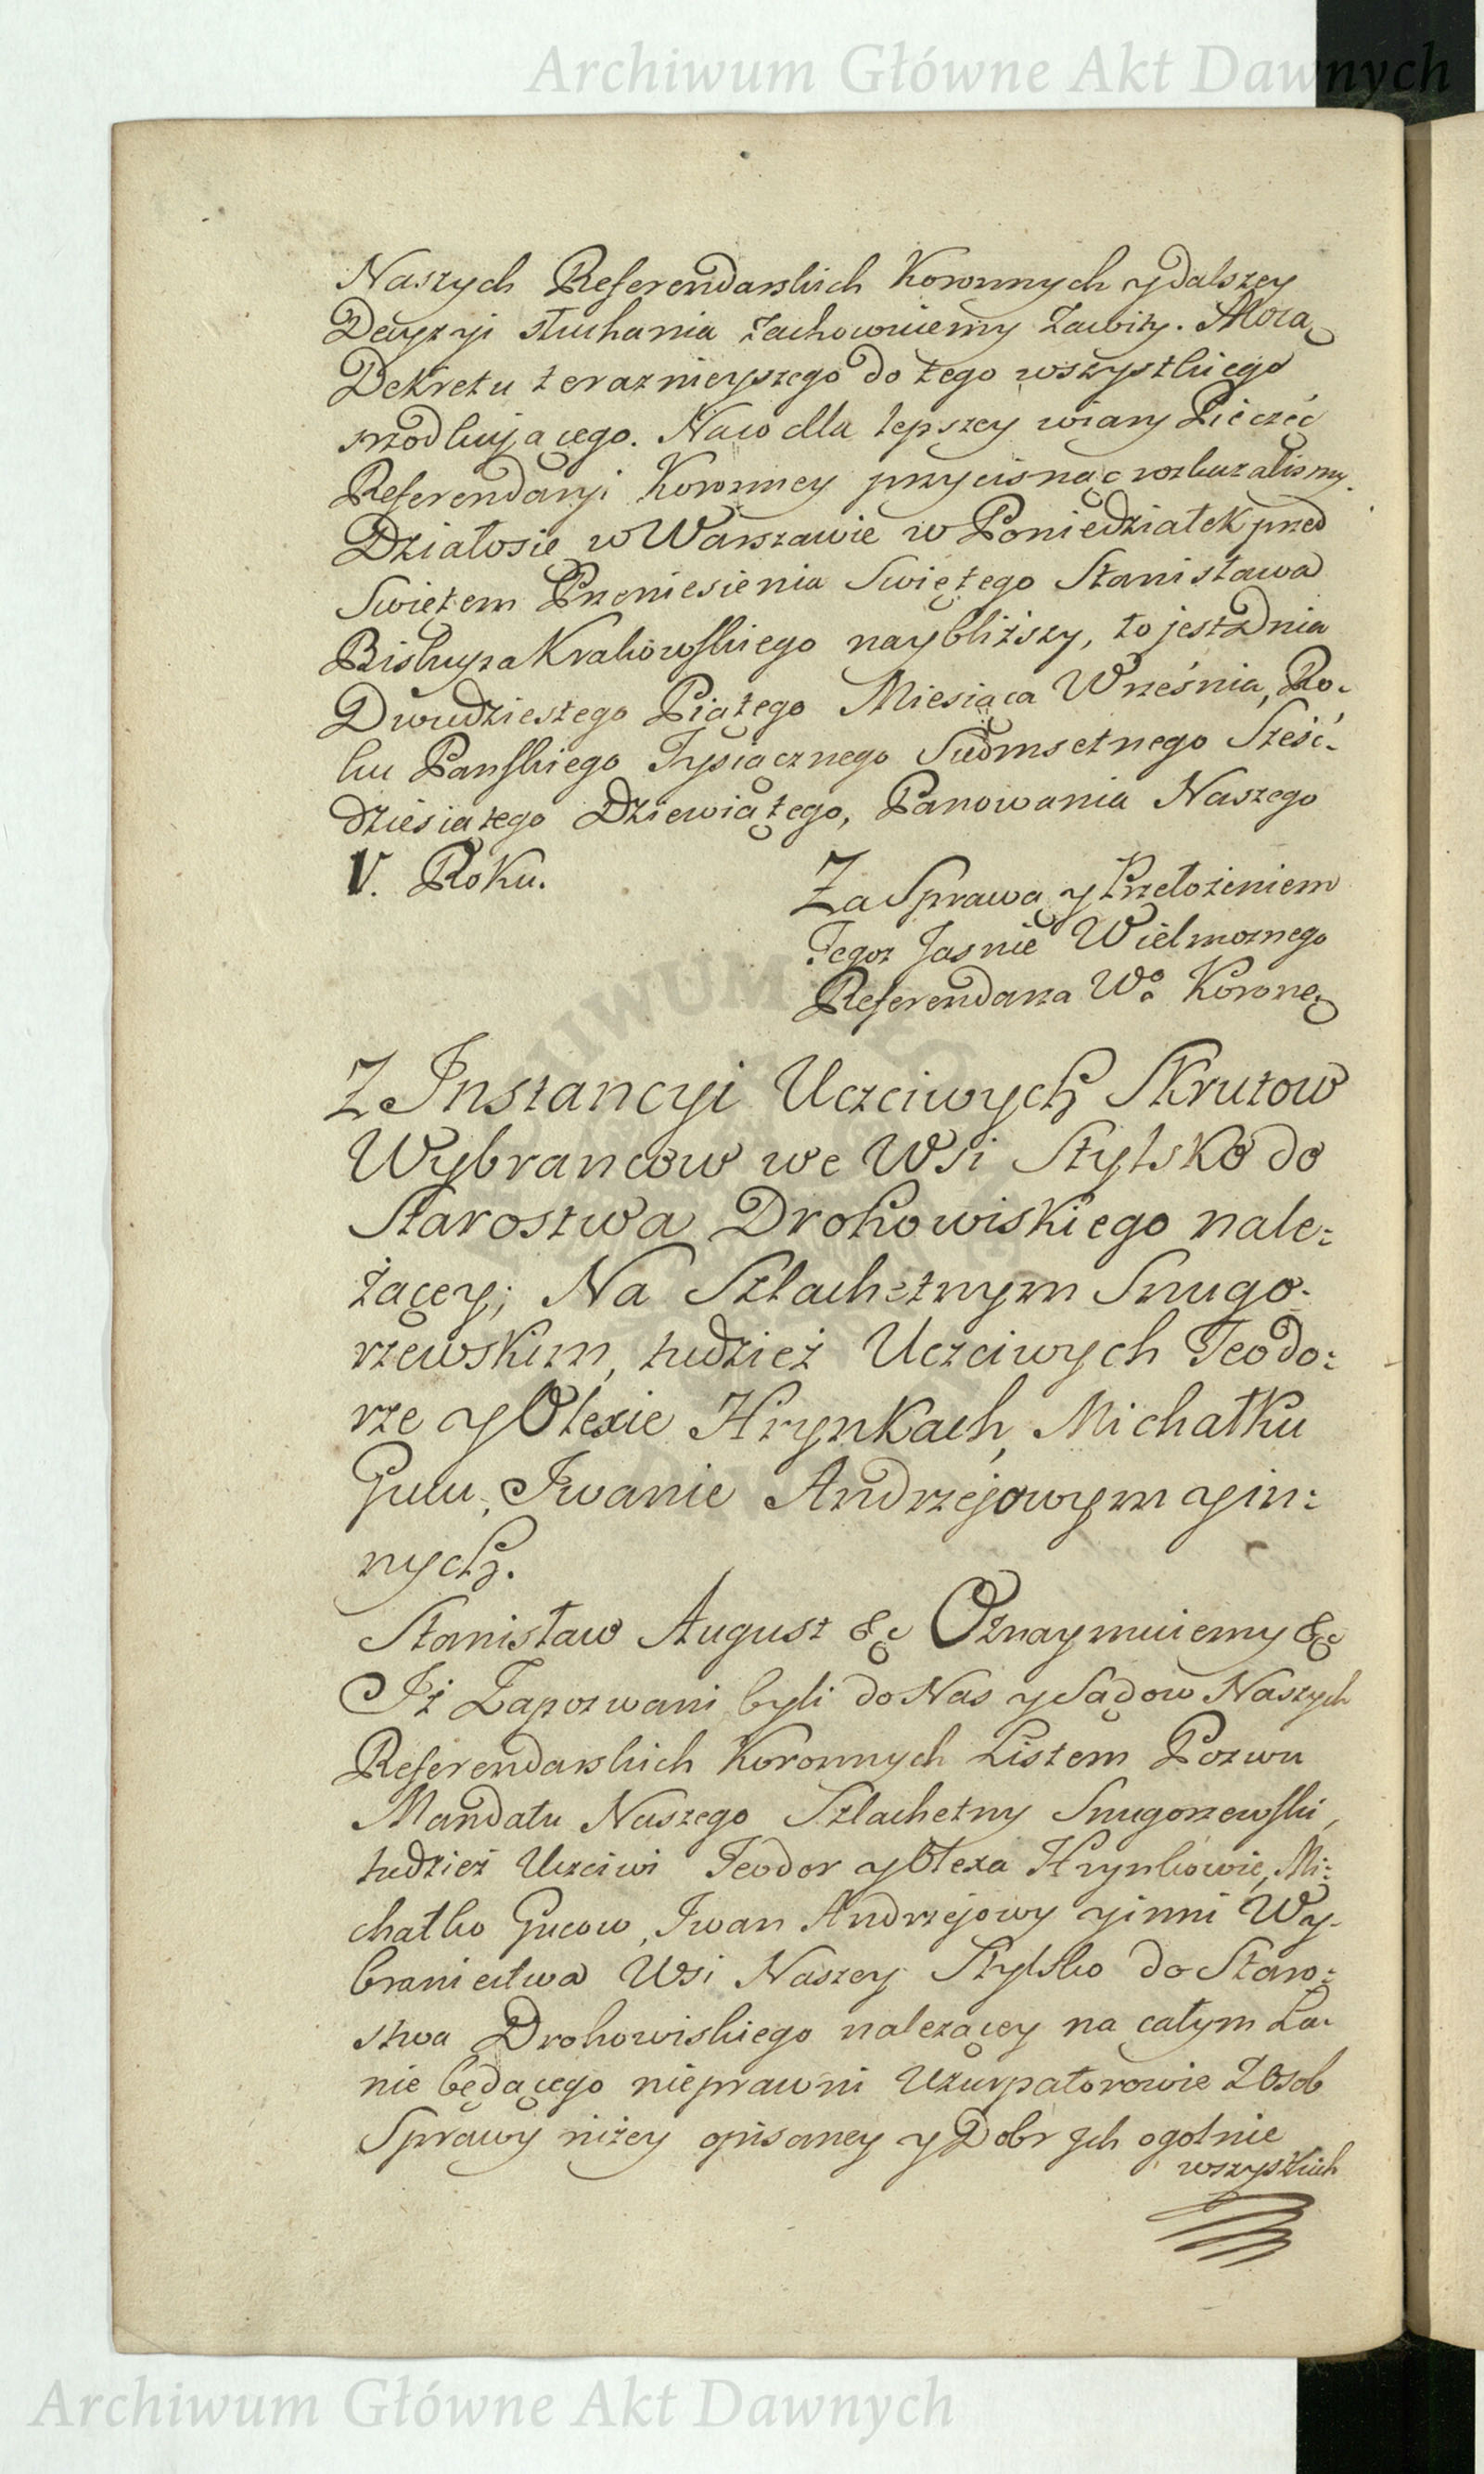 Archiwum Główne Akt Dawnych
Naszych Referendarskich Koronnych y dalszey
Decyzyi słuchania zachowuiemy zawity. Mocą
Dekretu teraznieyszego do tego wszystkiego
srzodkującego. Naco dla lepszey wiary Pieczęć
Referendaryi Koronney przycisnąć rozkazalismy.
Działosię w Warszawie w Poniedziałek przed
Swiętem Przeniesienia Swiętego Stanisława
Biskupa Krakowskiego naybliższy, to jest Dnia
Dwudziestego Piątego Miesiąca Września, Ro-
ku Panskiego Tysiącznego Siedmsetnego Sześć-
dziesiątego Dziewiątego, Panowania Naszego
V. Roku.
Za Sprawą y Przełożeniem
Tegoz Jasnie Wielmoznego
Referendarza Wo Koronne
Z Instancyi Uczciwych Skrutow
Wybrancow we Wsi Stylsko do
Starostwa Drohowiskiego nale:
żącey; Na Szlachetnym Smugo-
rzewskim, tudzież Uczciwych Teodo:
rze y Olexie Hrynkach, Michałku
Gucu, Iwanie Andrzejowym y in:
nych.
Stanisław August &c Oznaymuiemy &c
Iż Zapozwani byli do Nas y Sądow Naszych
Referendarskich Koronnych Listem Pozwu
Mandatu Naszego Szlachetny Smugorzewski,
tudzież Uczciwi Teodor y Olexa Hrynkowie, Mi:
chałko Gucow, Iwan Andrzejowy y inni Wy-
braniectwa Wsi Naszey Stylsko do Staro:
stwa Drohowiskiego nalezącey na całym Ła-
nie będącego nieprawni Uzurpatorowie z Osob
Sprawy niżey opisaney y Dobr Ich ogolnie
wszystkich
Archiwum Główne Akt Dawnych